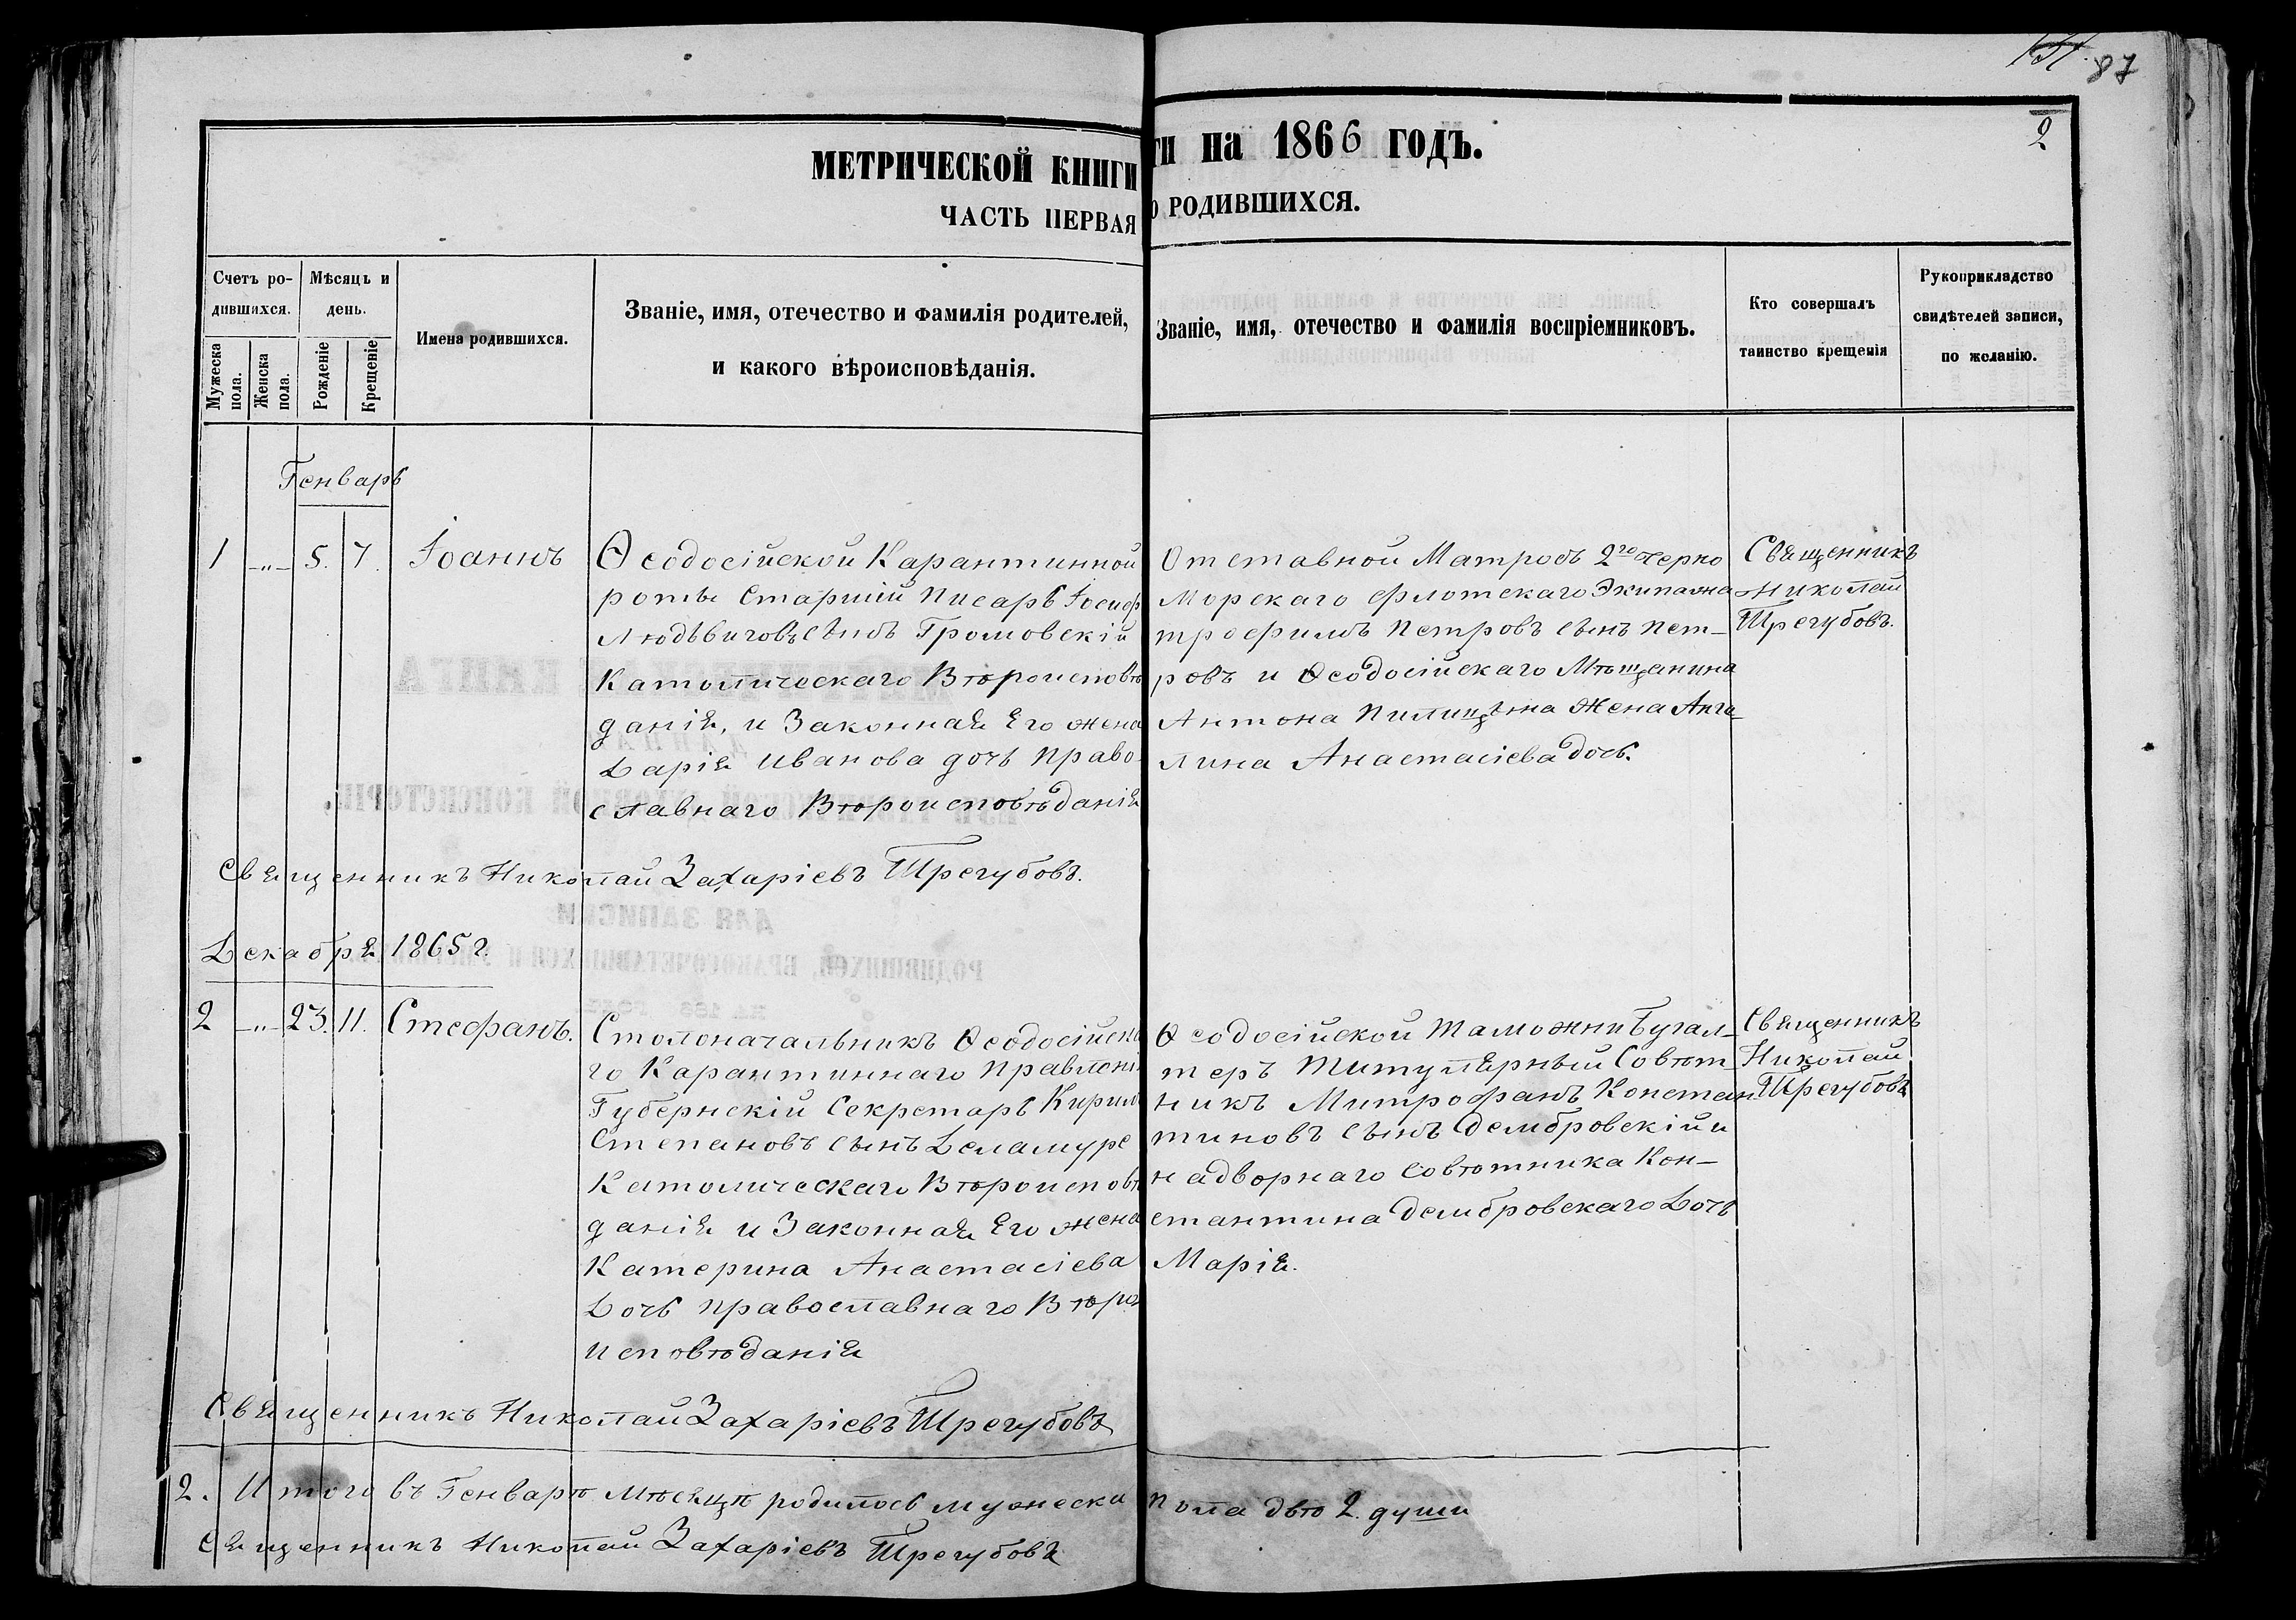 151. 87
2
МЕТРИЧЕСКОЙ КНИГИ
ти на 1866 годъ.
ЧАСТЬ ПЕРВАЯ
О РОДИВШИХСЯ.
Счетъ ро-
дившихся.
Мужеска
пола.
Женска
пола.
Мѣсяцъ и
день.
Рожденіе
Крещеніе
Имена родившихся.
Званіе, имя, отечество и фамилія родителей,
и какого вѣроисповѣданія.
Званіе, имя, отечество и фамилія воспріемниковъ.
Кто совершалъ
таинство крещенія
Рукоприкладство
свидѣтелей записи,
по желанію.
Генварь
1 -„- 5. 7. Іоаннъ
Ѳеодосійской Карантинной
роты Старшій Писарь Іосиф
Людвиговъ сынъ Громовскій
Католическаго Вѣроисповѣ
данія, и Законная Его жена
Дарія Иванова дочь право-
славнаго Вѣроисповѣданія
Отставной Матросъ 2го Черно
Морскаго Флотскаго Экипажа
Трофимъ Петровъ сынъ Пет-
ровъ и Ѳеодосійскаго Мѣщанина
Антона жена Анге-
лина Анастасіева дочь.
Священникъ
Николай
Трегубовъ.
Священникъ Николай Захаріевъ Трегубовъ.
Декабря 1865 г.
2 -„- 23. 11. Стефанъ.
Столоначальникъ Ѳеодосійска
го Карантиннаго Правлені
Губернскій Секретарь Кирил
Степановъ сынъ Деламуре
Католическаго Вѣроисповѣ
данія и Законная Его жена
Катерина Анастасіева
Дочь православнаго Вѣро
исповѣданія
Ѳеодосійской Таможни Бугал-
теръ Титулярный Совѣт-
никъ Митрофанъ Констан-
тиновъ сынъ Дембровскій и
надворнаго Совѣтника Кон-
стантина Дембровскаго Дочь
Марія.
Священникъ
Николай
Трегубовъ
Священникъ Николай Захаріевъ Трегубовъ
2. Итого въ Генварѣ Мѣсяцѣ родилось мужеска пола двѣ 2. души
Священникъ Николай Захаріевъ Трегубовъ